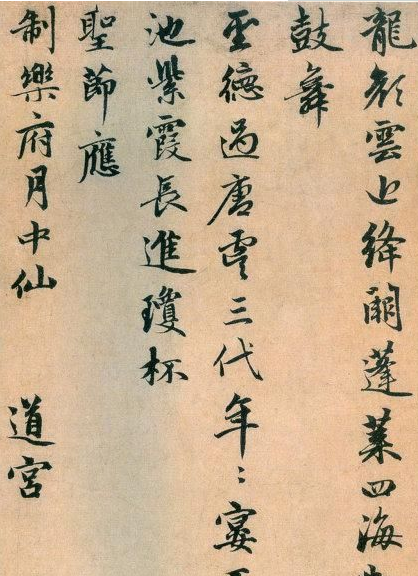 龍顏雲近絳闕蓬萊四海
鼓舞
聖德過唐虞三代年々宴
池紫霞長進瓊杯
聖節應
制樂府月中仙 道宮